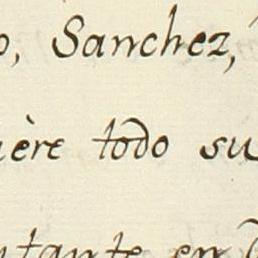 o, Sanchez,
ère todo su
ntante en